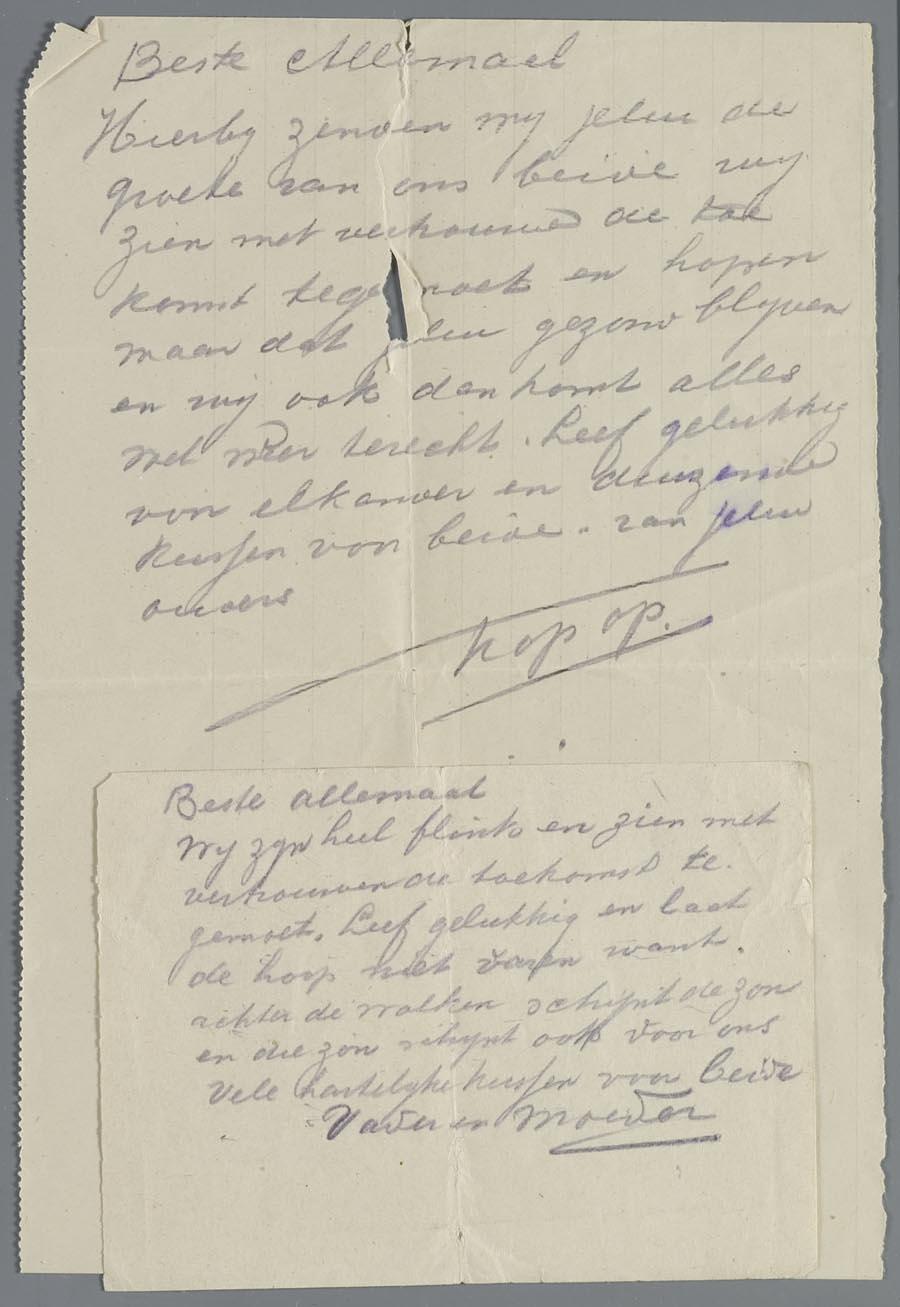 Beste Allemaal
Hierby zenden wy jelui de
groete van ons beide wy
zien met vertrouwe die toe
komst tege moet en hopen
maar dat jelui gezond blyven
en wy ook dan komt alles
wel weer terecht. Leef gelukkig
voor elkander en duizende
kussen voor beide. van jelui
ouders
kop op.
Beste allemaal
Wy zyn heel flink en zien met
vertrouwen de toekomst te.
gemoet. Leef gelukkig en laat
de hoop niet varen want.
achter de wolken schijnt de zon
en die zon schynt ook voor ons
Vele hartelyke kussen voor beide
Vader en Moeder